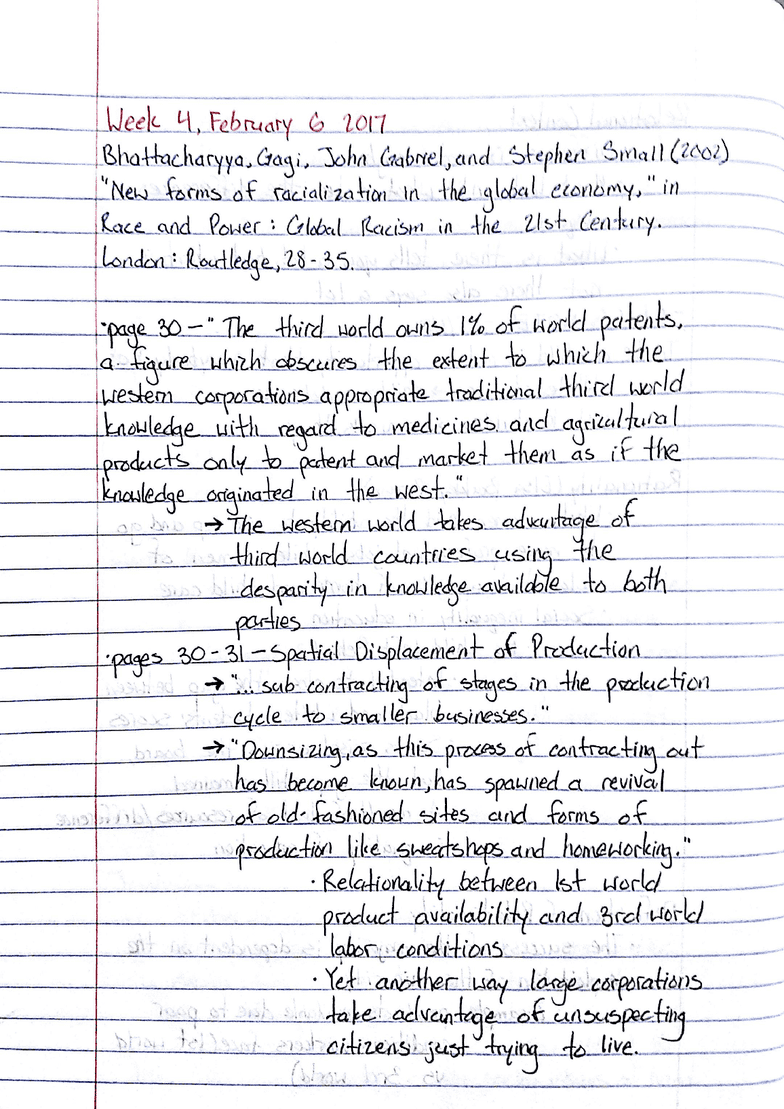 Week 4, February 6 2017
Bhattacharyya, Gagi, John Gabriel, and Stephen Small (2002)
"New forms of racialization in the global economy," in
Race and Power: Global Racism in the 21st Century.
London: Routledge, 28-35.
·page 30 - "The third world owns 1% of world patents,
a figure which obscures the extent to which the
western corporations appropriate traditional third world
knowledge with regard to medicines and agricultural
products only to patent and market them as if the
knowledge originated in the west."
→ The western world takes advantage of
third world countries using the
desparity in knowledge available to both
parties
·pages 30-31 - Spatial Displacement of Production
→ "... sub contracting of stages in the production
cycle to smaller businesses."
→ "Downsizing, as this process of contracting out
has become known, has spawned a revival
of old-fashioned sites and forms of
production like sweatshops and homeworking."
· Relationality between 1st world
product availability and 3rd world
labor conditions
· Yet another way large corporations
take advantage of unsuspecting
citizens just trying to live.